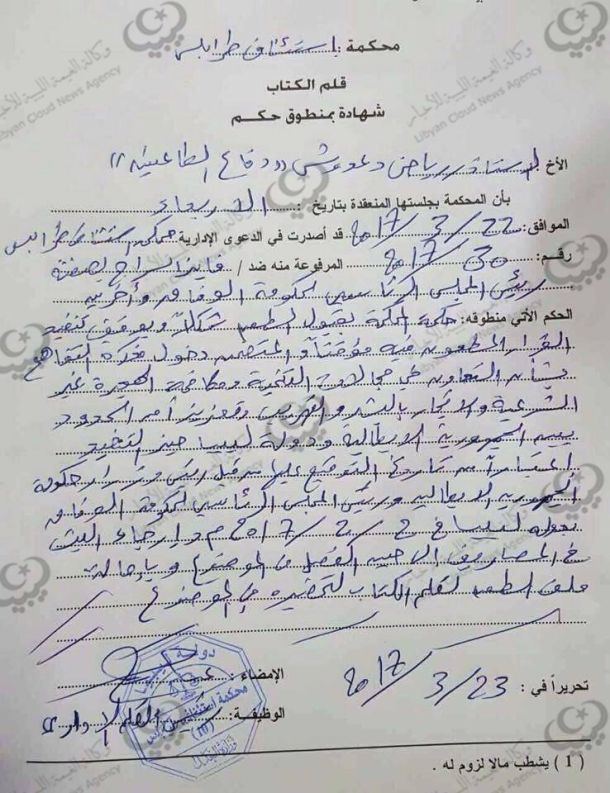 محكمة : استئناف طرابلس
قلم الكتاب
شهادة بمنطوق حكم
الأخ : الأستاذ رياض دعدوش " دفاع الطاعنين "
بأن المحكمة بجلستها المنعقدة بتاريخ : الاربعاء
الموافق: 22 / 3 / 2017 قد أصدرت في الدعوى الإدارية محكمة استئناف طرابلس
رقم: 30 / 2017 المرفوعة منه ضد / فايز السراج بصفته
رئيس المجلس الرئاسي لحكومة الوفاق وآخرين
الحكم الآتي منطوقه: حكمت المحكمة بقبول الطعن شكلاً وبوقف تنفيذ
القرار المطعون فيه مؤقتاً والمتضمن دخول مذكرة التفاهم
بشأن التعاون في مجالات التنمية ومكافحة الهجرة غير
الشرعية والاتجار بالبشر والتهريب وتعزيز أمن الحدود
بين الجمهورية الايطالية ودولة ليبيا حيز التنفيذ
اعتباراً من تاريخ التوقيع عليها من قبل رئيس وزراء حكومة
الجمهورية الايطالية ورئيس المجلس الرئاسي لحكومة الوفاق
بدولة ليبيا في 2 / 2 / 2017 م وارجاء البث
في المصاريف الى حين الفصل في الموضوع وباحالة
ملف الطعن لقلم الكتاب لتحضيره في الموضوع
الإمضاء :
تحريراً في : 23 / 3 / 2017
الوظيفة: القلم الاداري
دولة ليبيا
محكمة استئناف طرابلس
( 1 ) يشطب مالا لزوم له .
وكالة الغيمة الليبية للأخبار
Libyan Cloud News Agency